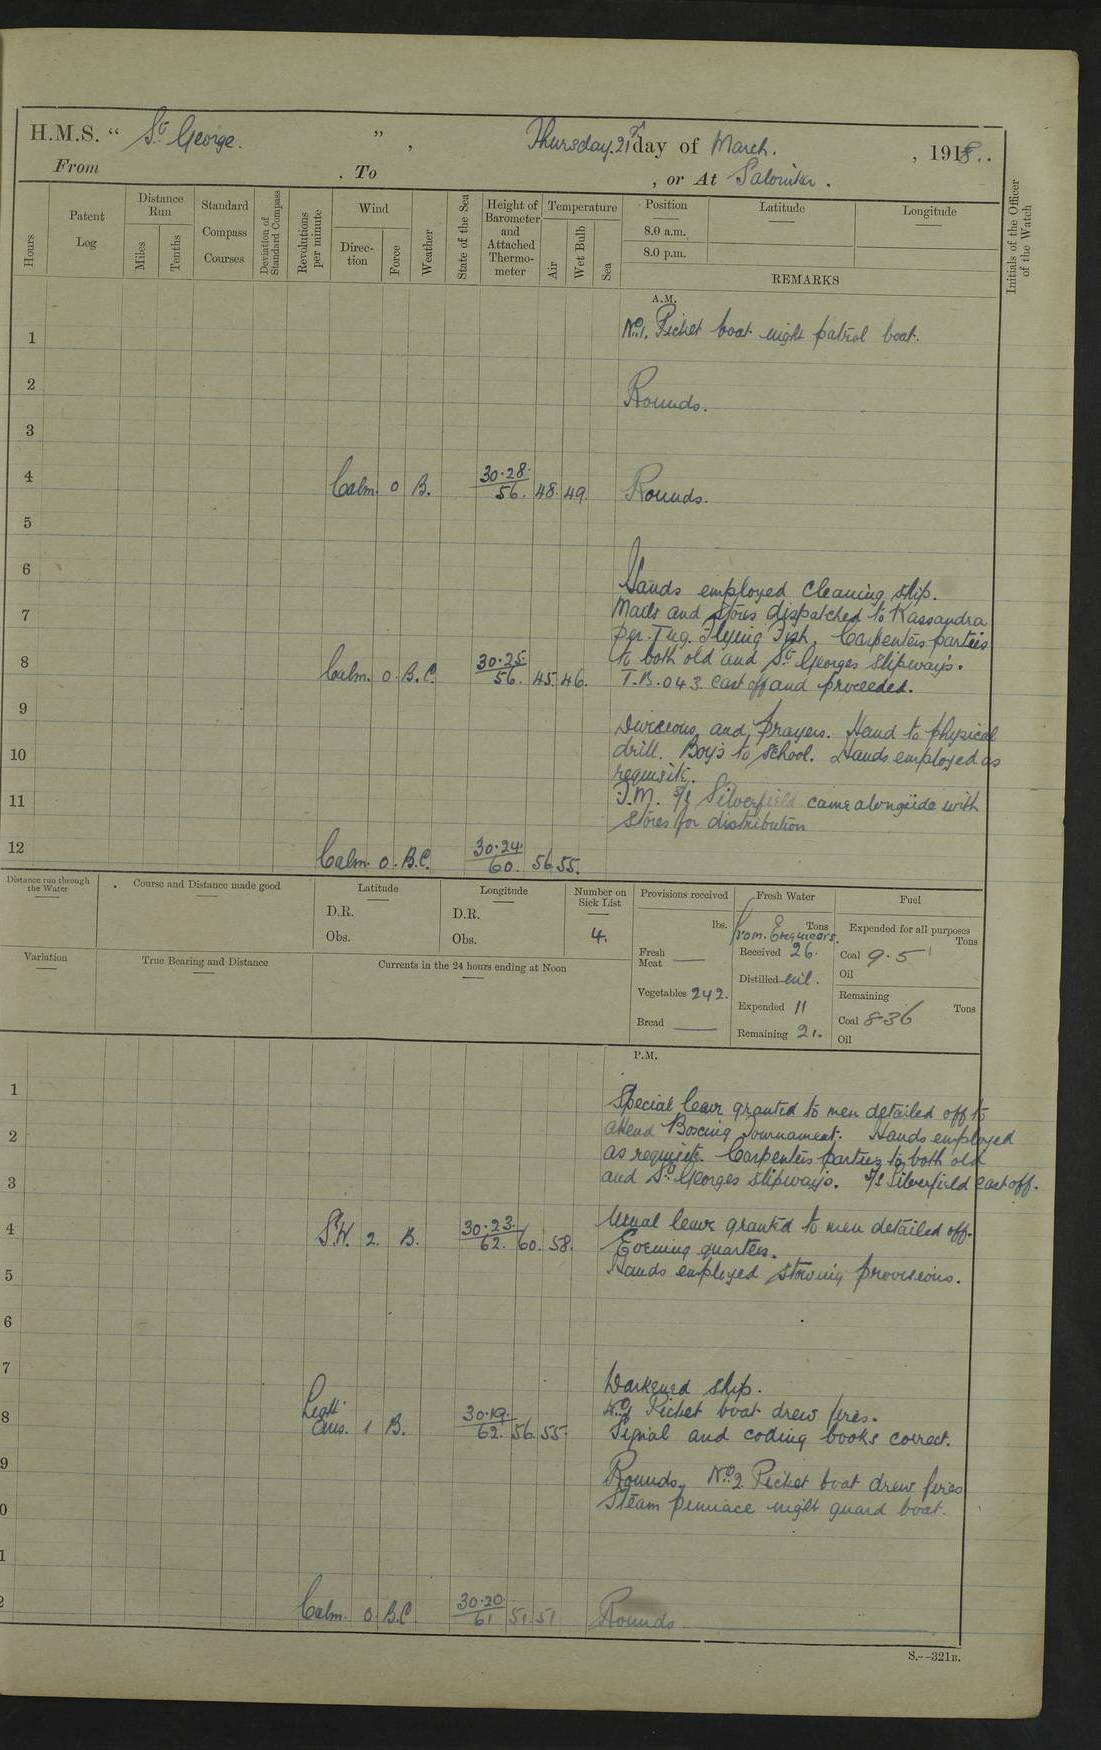 H.M.S. “ St George. ” , Thursday. 21st day of March. , 1918..
From . To , or At Salonika.
Hours
Patent Log
Distance Run
Miles
Tenths
Standard Compass Courses
Deviation of Standard Compass
Revolutions per minute
Wind
Direc-tion
Force
Weather
State of the Sea
Height of Barometer and Attached Thermo-meter
Temperature
Air
Wet Bulb
Sea
Position
8.0 a.m.
8.0 p.m.
Latitude
Longitude
REMARKS
Initials of the Officer of the Watch
A.M.
1 No1. Picket boat night patrol boat.
2 Rounds.
3
4 Calm. 0 B. 30.28. / 56. 48. 49. Rounds.
5
6 Hands employed cleaning ship.
7 Mails and stores dispatched to Kassandra
per. Tug. Flying Fish. Carpenters parties
8 to both old and St Georges slipways.
Calm. 0. B.C. 30.25 / 56. 45. 46. T.B. 043 cast off and proceeded.
9 Divisions and prayers. Hand to physical
10 drill. Boys to school. Hands employed as
requisite.
11 S/S Silverfield came alongside with
stores for distribution
12 Calm. 0. B.C. 30.24 / 60. 56. 55.
Distance run through the Water
Course and Distance made good
Latitude
D.R.
Obs.
Longitude
D.R.
Obs.
Number on Sick List
4.
Provisions received
lbs.
Fresh Meat —
Vegetables 242.
Bread —
Fresh Water
Tons
From. Engineers.
Received 26.
Distilled nil.
Expended 11
Remaining 21.
Fuel
Expended for all purposes
Tons
Coal 9.5
Oil
Remaining
Tons
Coal 836
Oil
Variation
True Bearing and Distance
Currents in the 24 hours ending at Noon
P.M.
1 Special leave granted to men detailed off to
2 attend Boxing Tournament. Hands employed
as requisite. Carpenters parties to both old
3 and St Georges slipways. S/S Silverfield cast off.
4 Usual leave granted to men detailed off.
S.W. 2. B. 30.23. / 62. 60. 58. Evening quarters.
5 Hands employed stowing provisions.
6
7 Darkened ship.
8 No1 Picket boat drew fires.
Light airs. 1 B. 30.19. / 62. 56. 55. Signal and coding books correct.
9 Rounds. No2 Picket boat drew fires
0 Steam pinnace night guard boat.
1
2 Calm. 0. B.C 30.20 / 61 51 51 Rounds.
S.--321B.